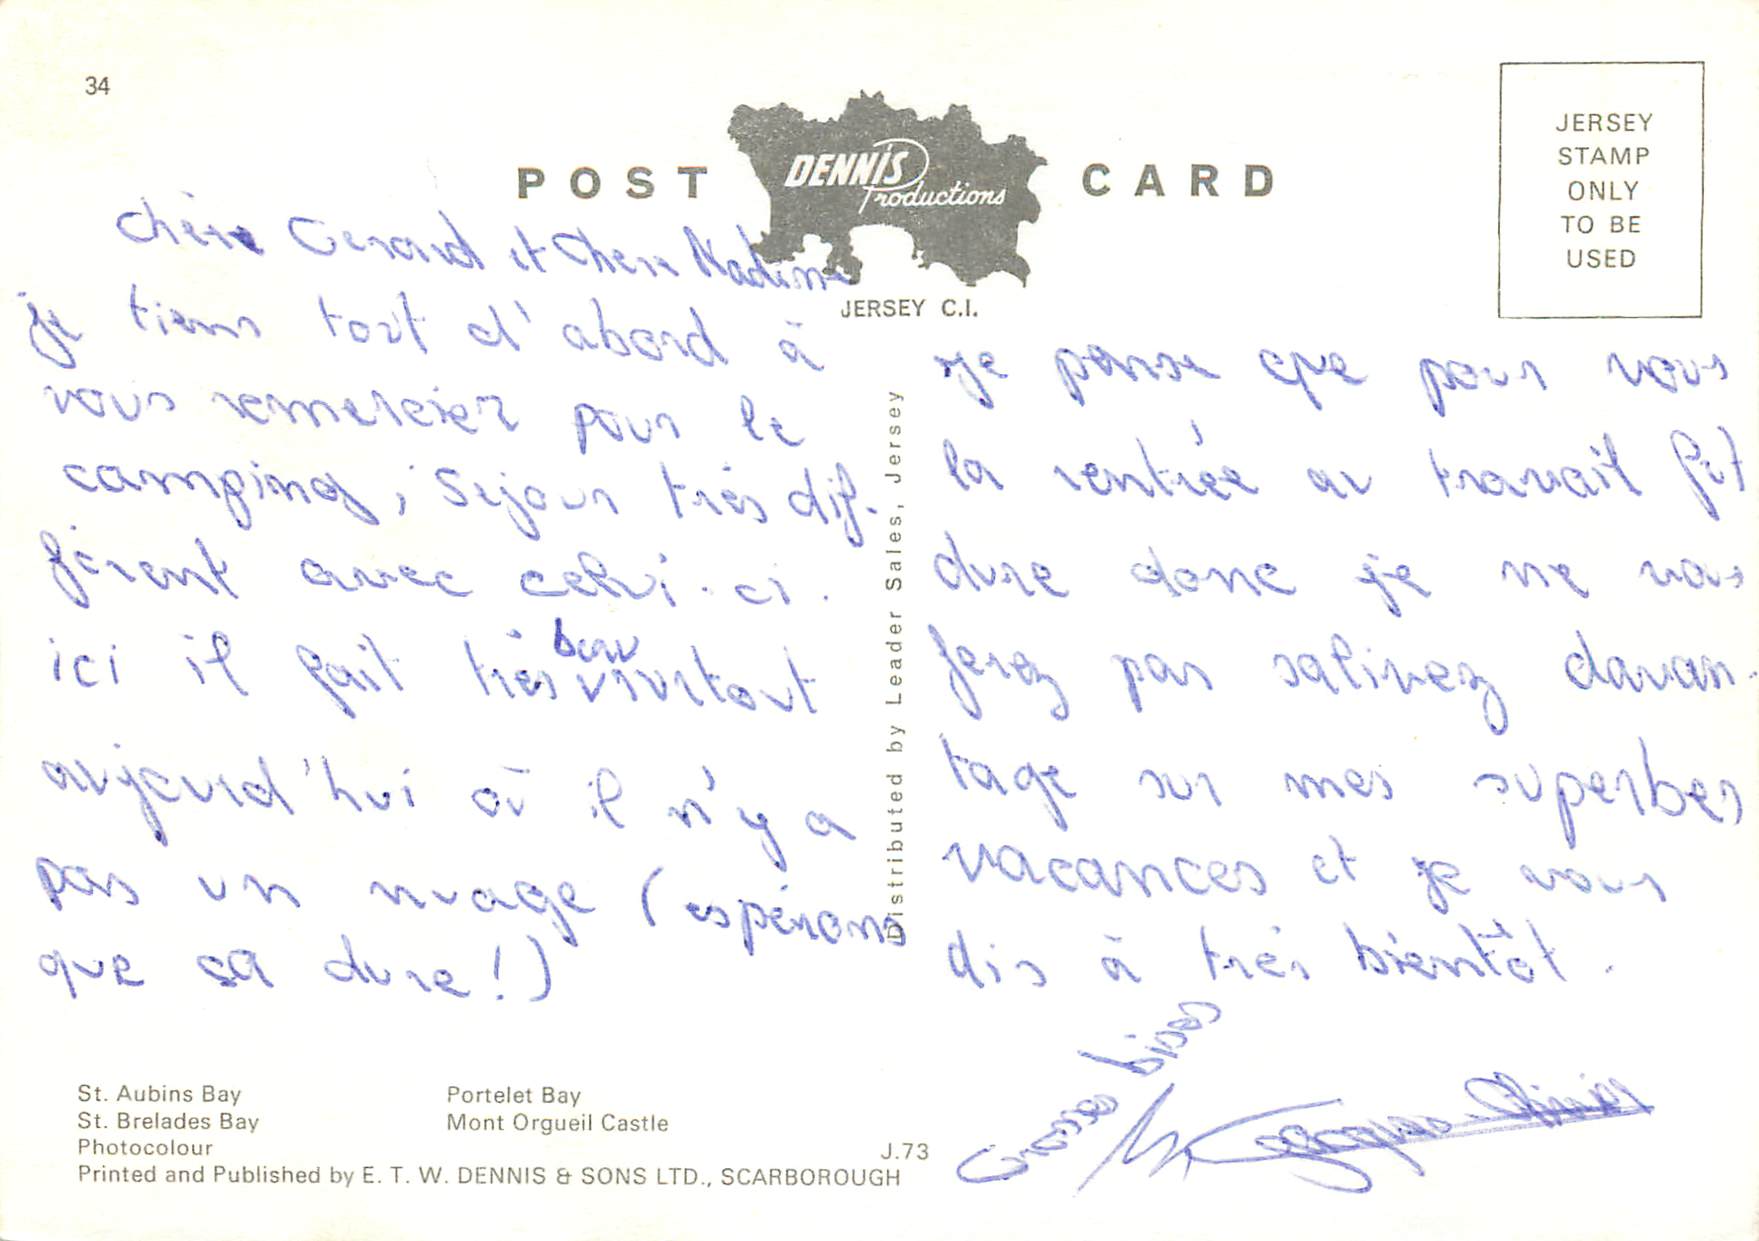 34
POST CARD
DENNIS
Productions
JERSEY C.I.
JERSEY
STAMP
ONLY
TO BE
USED
chère Gerard et chere Nadine
je tiens tout d'abord à
vous remercier pour le
camping, Sejour très dif-
férent avec celui-ci.
ici il fait très beau surtout
aujourd'hui où il n'y a
pas un nuage (espérons
que sa dure!)
Distributed by Leader Sales, Jersey
je pense que pour vous
la rentrée au travail fut
dure donc je ne vous
ferez pas salivez davan-
tage sur mes superbes
vacances et je vous
dis à très bientôt.
Grosses bises
St. Aubins Bay
St. Brelades Bay
Portelet Bay
Mont Orgueil Castle
Photocolour
J.73
Printed and Published by E. T. W. DENNIS & SONS LTD., SCARBOROUGH